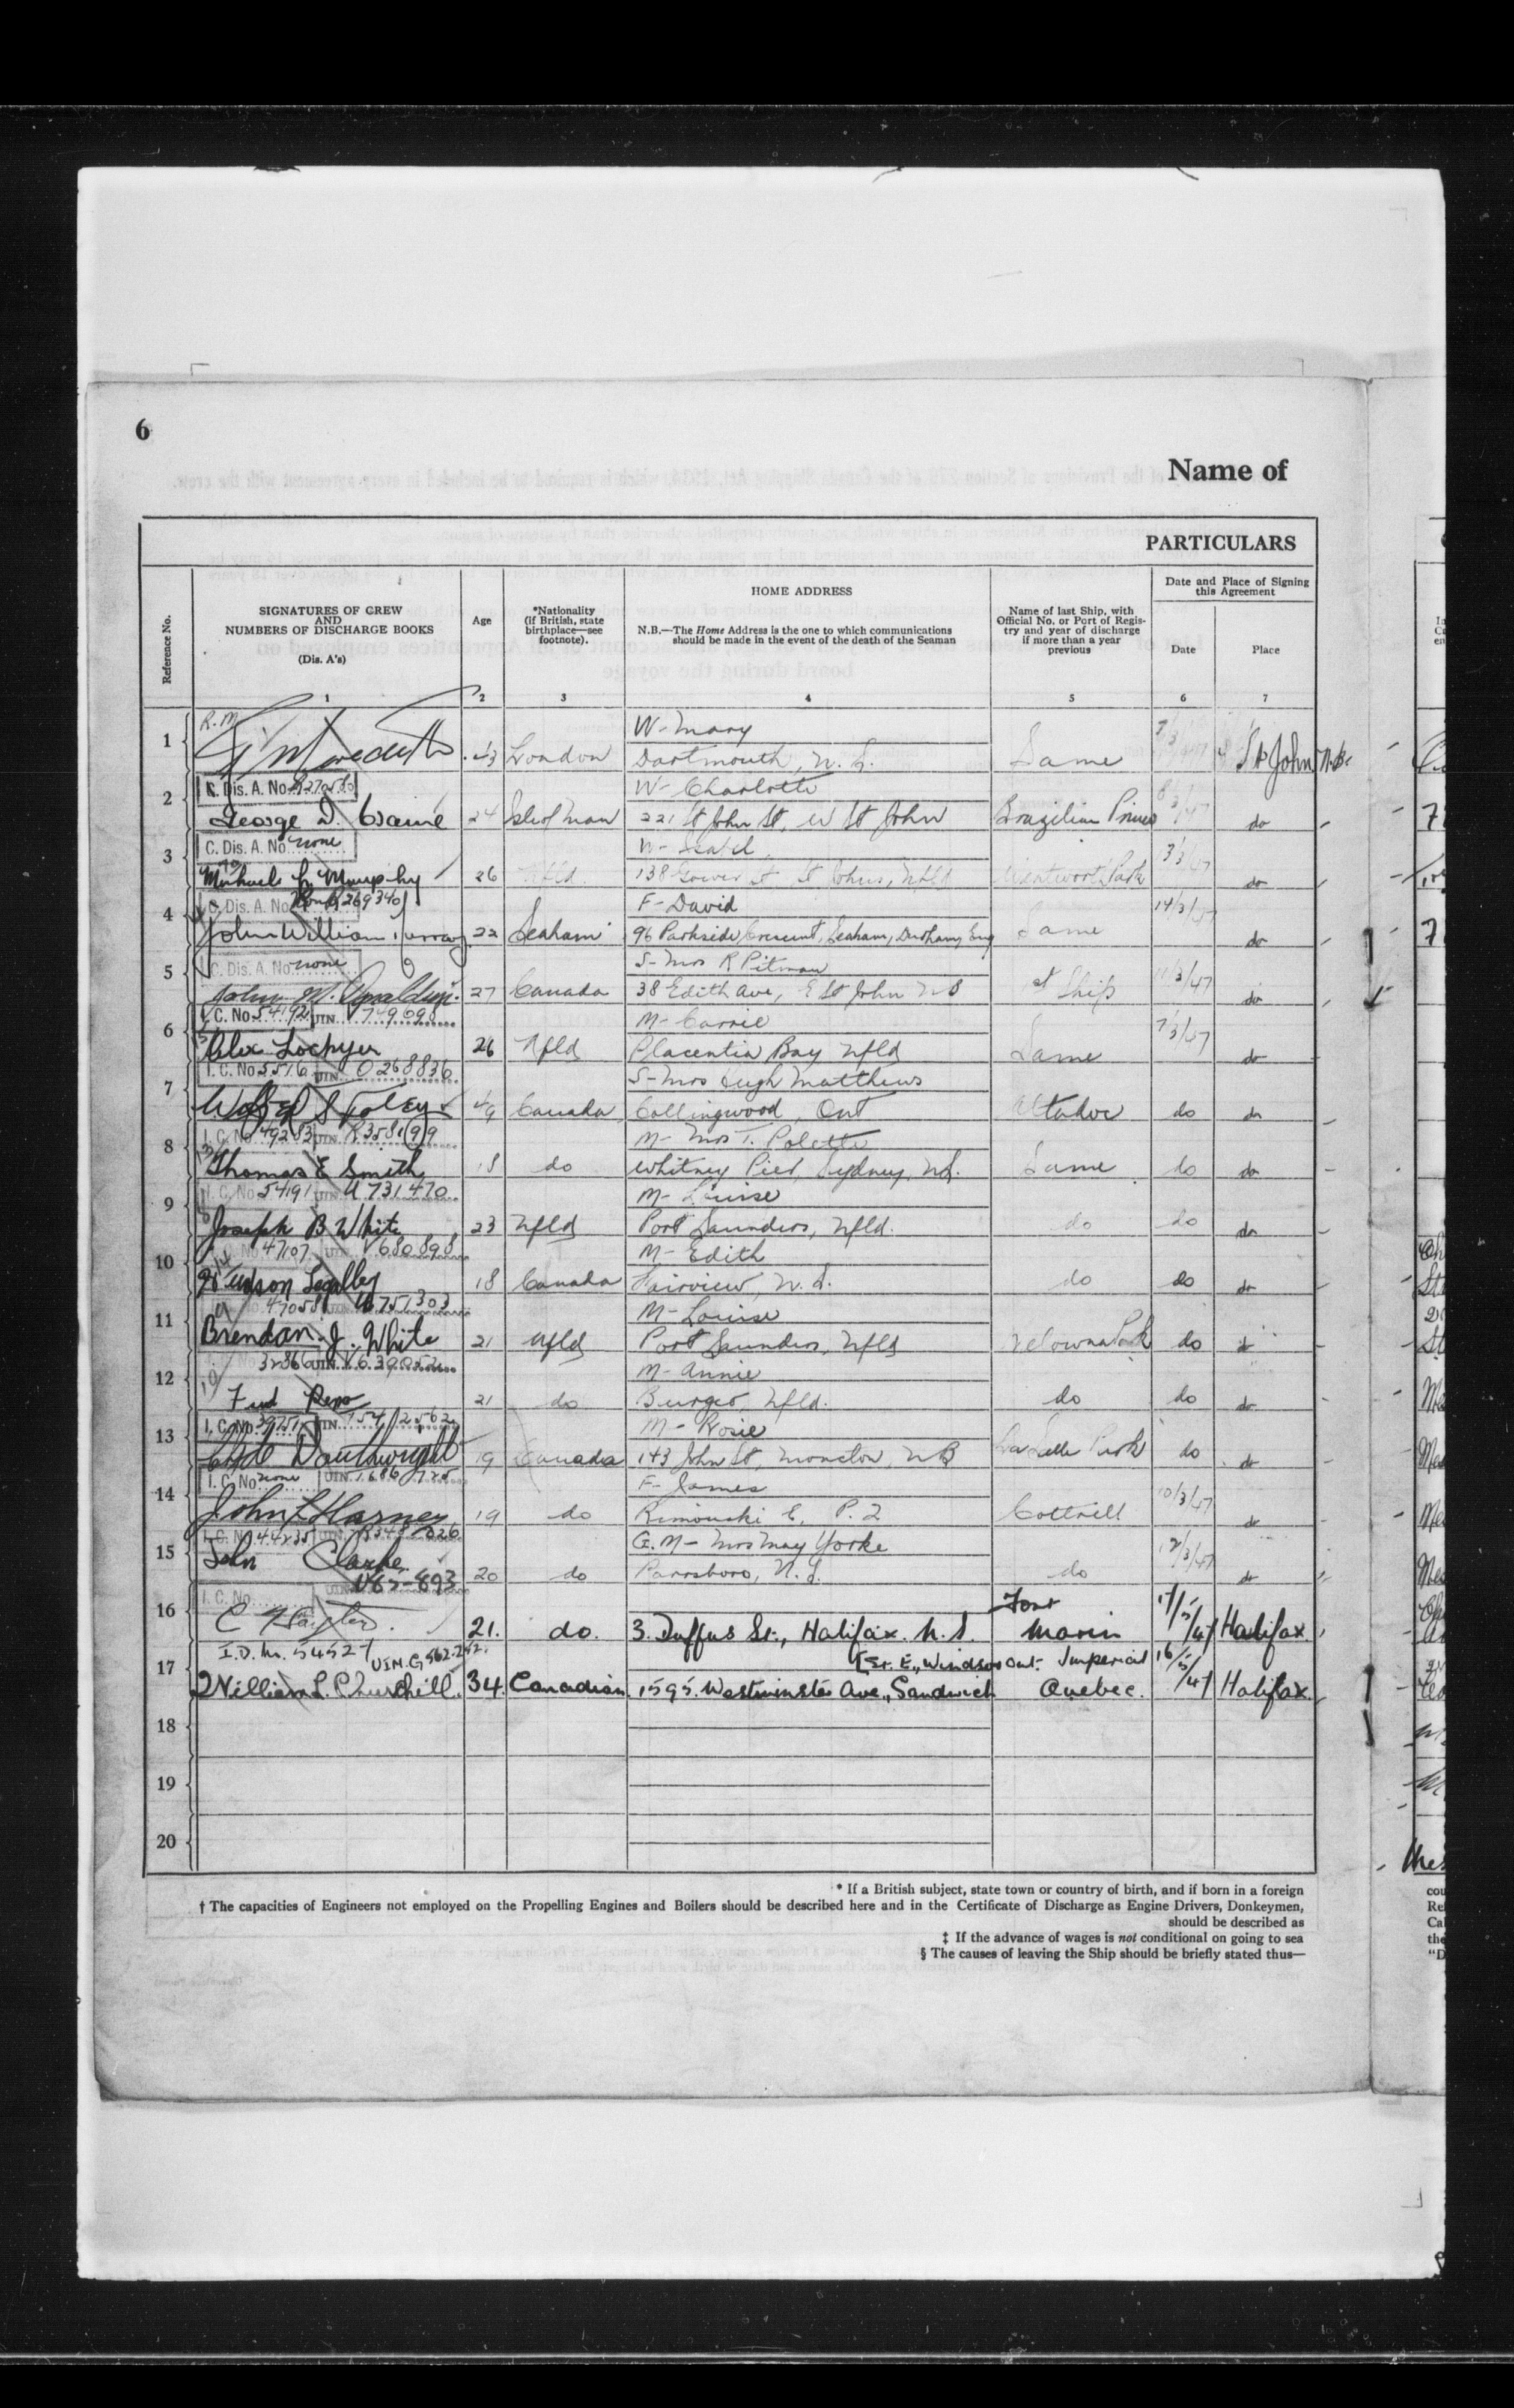 6
Name of
PARTICULARS
Reference No.
SIGNATURES OF CREW
AND
NUMBERS OF DISCHARGE BOOKS
(Dis. A's)
Age
*Nationality
(if British, state
birthplace—see
footnote).
HOME ADDRESS
N.B.—The Home Address is the one to which communications
should be made in the event of the death of the Seaman
Name of last Ship, with
Official No. or Port of Regis-
try and year of discharge
if more than a year
previous
Date and Place of Signing
this Agreement
Date
Place
1 2 3 4 5 6 7
R.M. W- Mary
1 Meredith 43 London Dartmouth, N.S. Same St John N.B.
C. Dis. A. No. W- Charlotte
2 George D. 24 Isle of Man 221 St John St, W St John Brazilian Prince do
C. Dis. A. No. none W-
3 Michael Murphy 26 Nfld 138 Gower St St Johns, Nfld Wentworth Park do
C. Dis. A. No. R269340 F- David 14/3/47
4 John William Murray 22 Seaham 96 Parkside Crescent, Seaham, Durham, Eng Same do
C. Dis. A. No. none S- Mrs R Pitman
5 John M. 27 Canada 38 Edith Ave, E St John NB at Ship 11/3/47 do
I.C. No. 54192 UIN 749698 M- Carrie
6 Alex Lockyer 26 Nfld Placentia Bay Nfld Same 7/3/47 do
I.C. No. 5516 UIN 0268836 S- Mrs Hugh Matthews
7 Foley 49 Canada Collingwood, Ont do do
I.C. No. 49283 UIN R358199 M- Mrs T. Polette
8 Thomas E Smith 18 do Whitney Pier, Sydney, N.S. Same do do
I.C. No. 54191 UIN U731470 M- Louise
9 Joseph B White 23 Nfld Port Saunders, Nfld. do do do
No. 47107 UIN V680898 M- Edith
10 18 Canada Fairview, N.S. do do do
No. 47058 UIN U751303 M- Louise
11 Brendan J. White 21 Nfld Port Saunders, Nfld Kelowna Park do do
32866 UIN M- Annie
12 21 do Burgeo, Nfld. do do do
I.C. No. 39751 UIN M- Rosie
13 Clyde Douthwright 19 Canada 143 John St, Moncton, NB La Salle Park do do
I.C. No. none UIN F- James
14 John 19 do Rimouski E, P.Q Cottrell 10/3/47 do
I.C. No. 44235 UIN G.M- Mrs May Yorke
15 John Clarke 20 do Parrsboro, N.S. do 12/3/47 do
I.C. No. UIN
16 21. do. 3. Duffus St., Halifax. N.S. Fort Marin 17/5/47 Halifax.
I.D. No. 54527 UIN. G562.242. [St. E., Windsor Ont. Imperial
17 William L. Churchill. 34. Canadian. 1595. Westminster Ave., Sandwich Quebec. 16/5/47 Halifax.
18
19
20
* If a British subject, state town or country of birth, and if born in a foreign
† The capacities of Engineers not employed on the Propelling Engines and Boilers should be described here and in the Certificate of Discharge as Engine Drivers, Donkeymen,
should be described as
‡ If the advance of wages is not conditional on going to sea
§ The causes of leaving the Ship should be briefly stated thus—